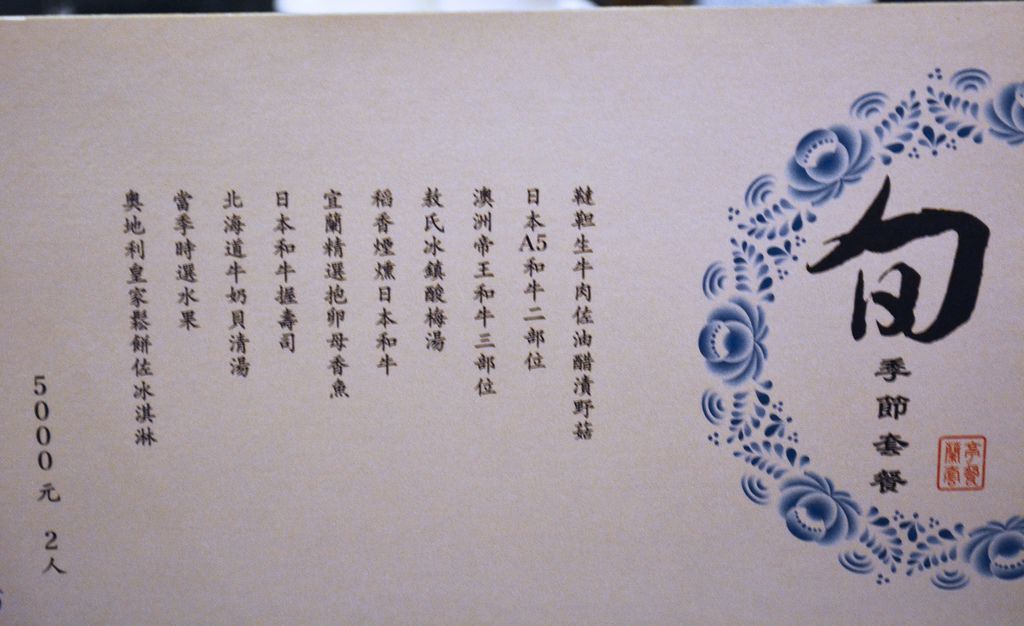 旬
季節套餐
韃靼生牛肉佐油醋漬野菇
日本A5和牛二部位
澳洲帝王和牛三部位
敖氏冰鎮酸梅湯
稻香煙燻日本和牛
宜蘭精選抱卵母香魚
日本和牛握壽司
北海道牛奶貝清湯
當季時選水果
奧地利皇家鬆餅佐冰淇淋
5000元 2人